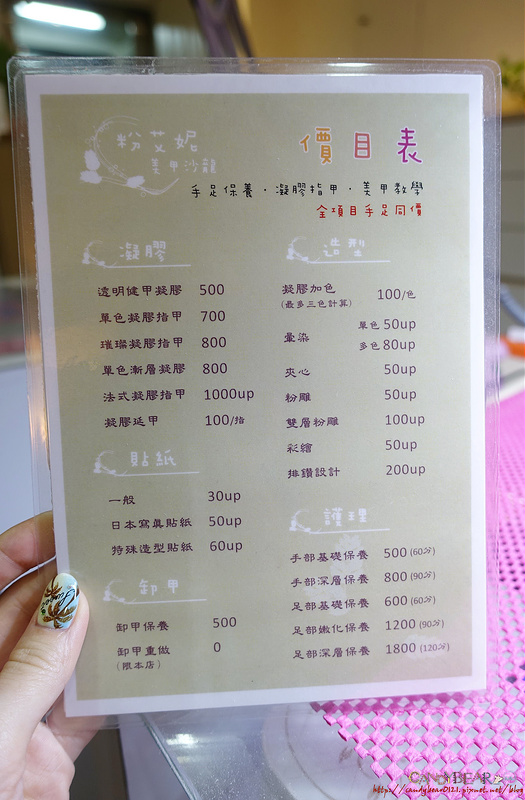 粉艾妮
美甲沙龍
價目表
手足保養·凝膠指甲·美甲教學
全項目手足同價
凝膠
透明健甲凝膠 500
單色凝膠指甲 700
璀璨凝膠指甲 800
單色漸層凝膠 800
法式凝膠指甲 1000up
凝膠延甲 100/指
貼紙
一般 30up
日本寫真貼紙 50up
特殊造型貼紙 60up
卸甲
卸甲保養 500
卸甲重做 0
(限本店)
造型
凝膠加色 100/色
(最多三色計算)
暈染 單色50up
多色80up
夾心 50up
粉雕 50up
雙層粉雕 100up
彩繪 50up
排鑽設計 200up
護理
手部基礎保養 500(60分)
手部深層保養 800(90分)
足部基礎保養 600(60分)
足部嫩化保養 1200(90分)
足部深層保養 1800(120分)
CANDYBEAR
http://candybear0121.pixnet.net/blog